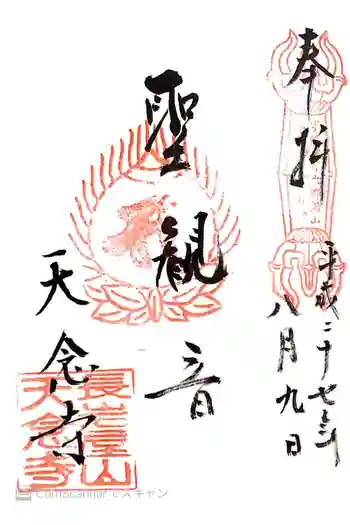 奉拝
平成二十七年
八月九日
聖観音
天念寺
長岩屋山
天念寺
CamScanner でスキャン